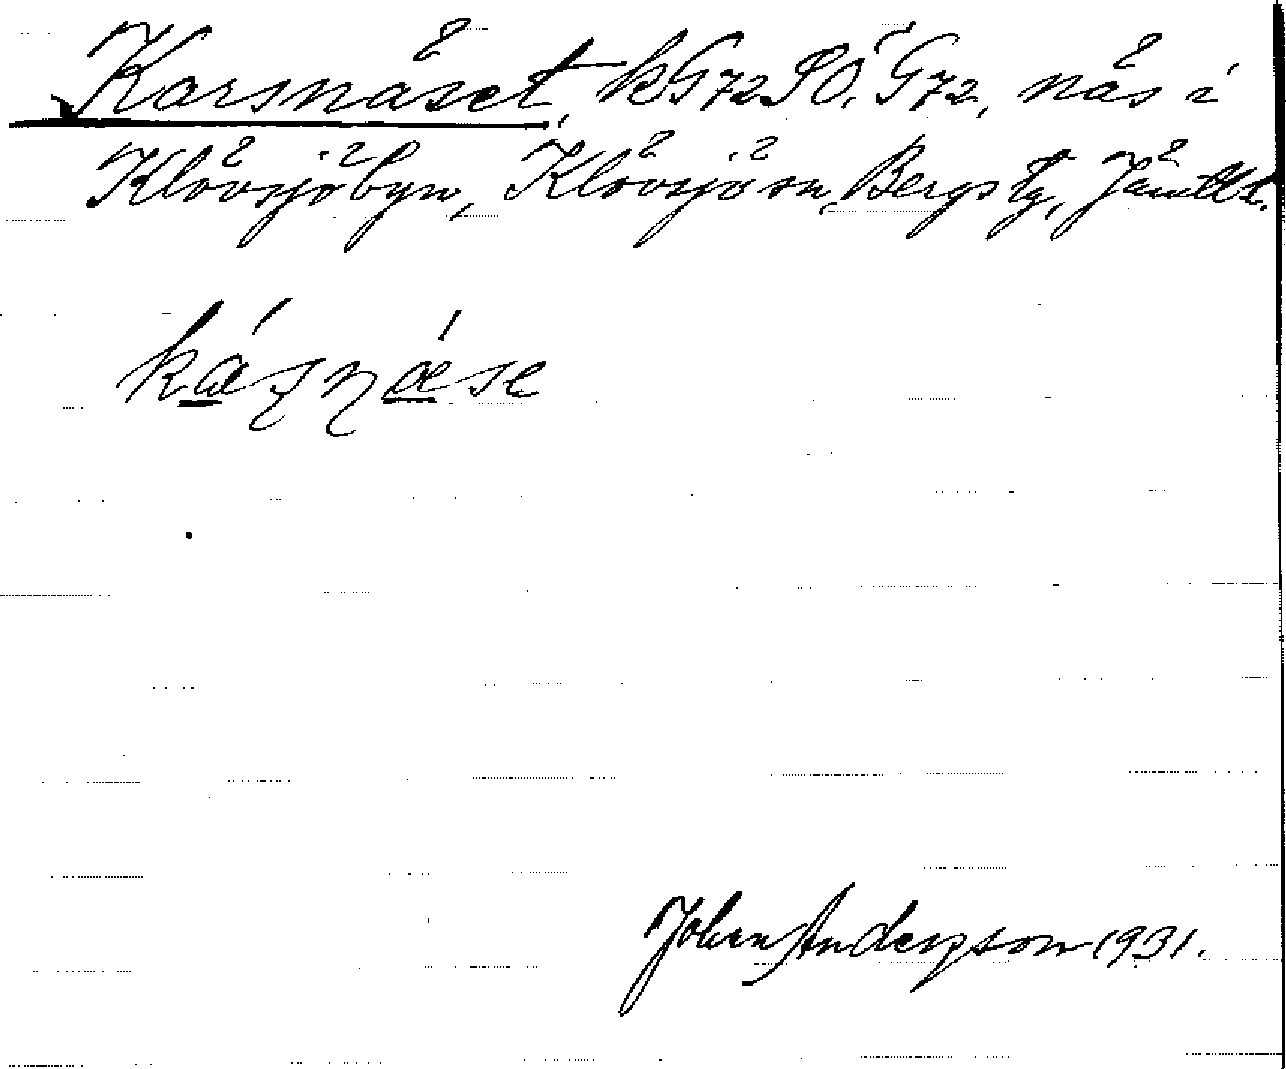 Karsnäset, kG72SO, G72, näs i
Klövsjöbyn, Klövsjö sn, Bergs tg, Jämtl.
káṣṇǽse
Johan Anderson 1931.